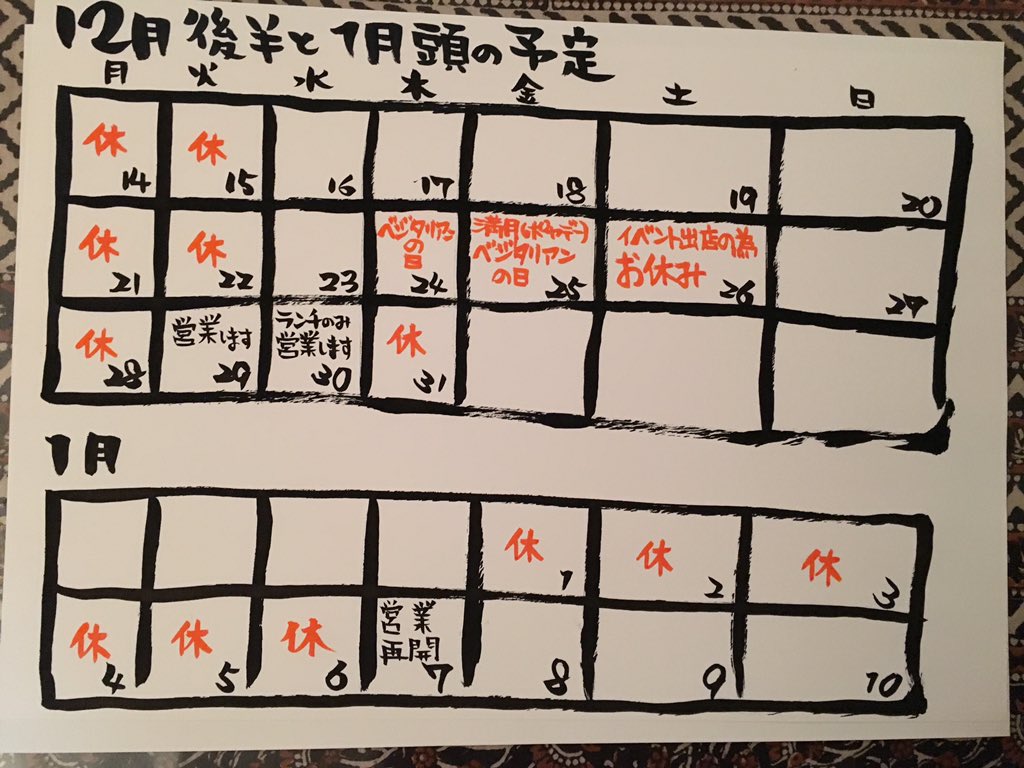 12月後半と1月頭の予定
月 火 水 木 金 土 日
休 休
14 15 16 17 18 19 20
休 休 ベジタリアンの日 満月(ポヤデー)ベジタリアンの日 イベント出店の為お休み
21 22 23 24 25 26 27
休 営業します ランチのみ営業します 休
28 29 30 31
1月
休 休 休
1 2 3
休 休 休 営業再開
4 5 6 7 8 9 10